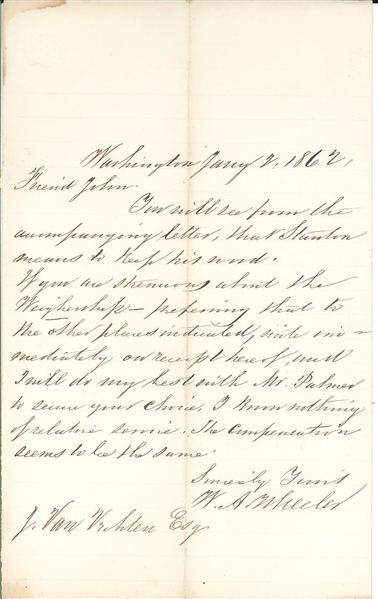 Washington Jany 2, 1862,
Friend John.
You will see from the
acompanying letter, that Stanton
means to keep his word.
If you are strenuous about the
Weighership – preferring that to
the other places indicated, write im=
mediately on receipt hereof, and
I will do my best with Mr. Palmer
to secure your choice. I know nothing
of relative service. The compensation
seems to be the same.
Sincerely Yours
W. A. Wheeler
J. Van Vechten Esq